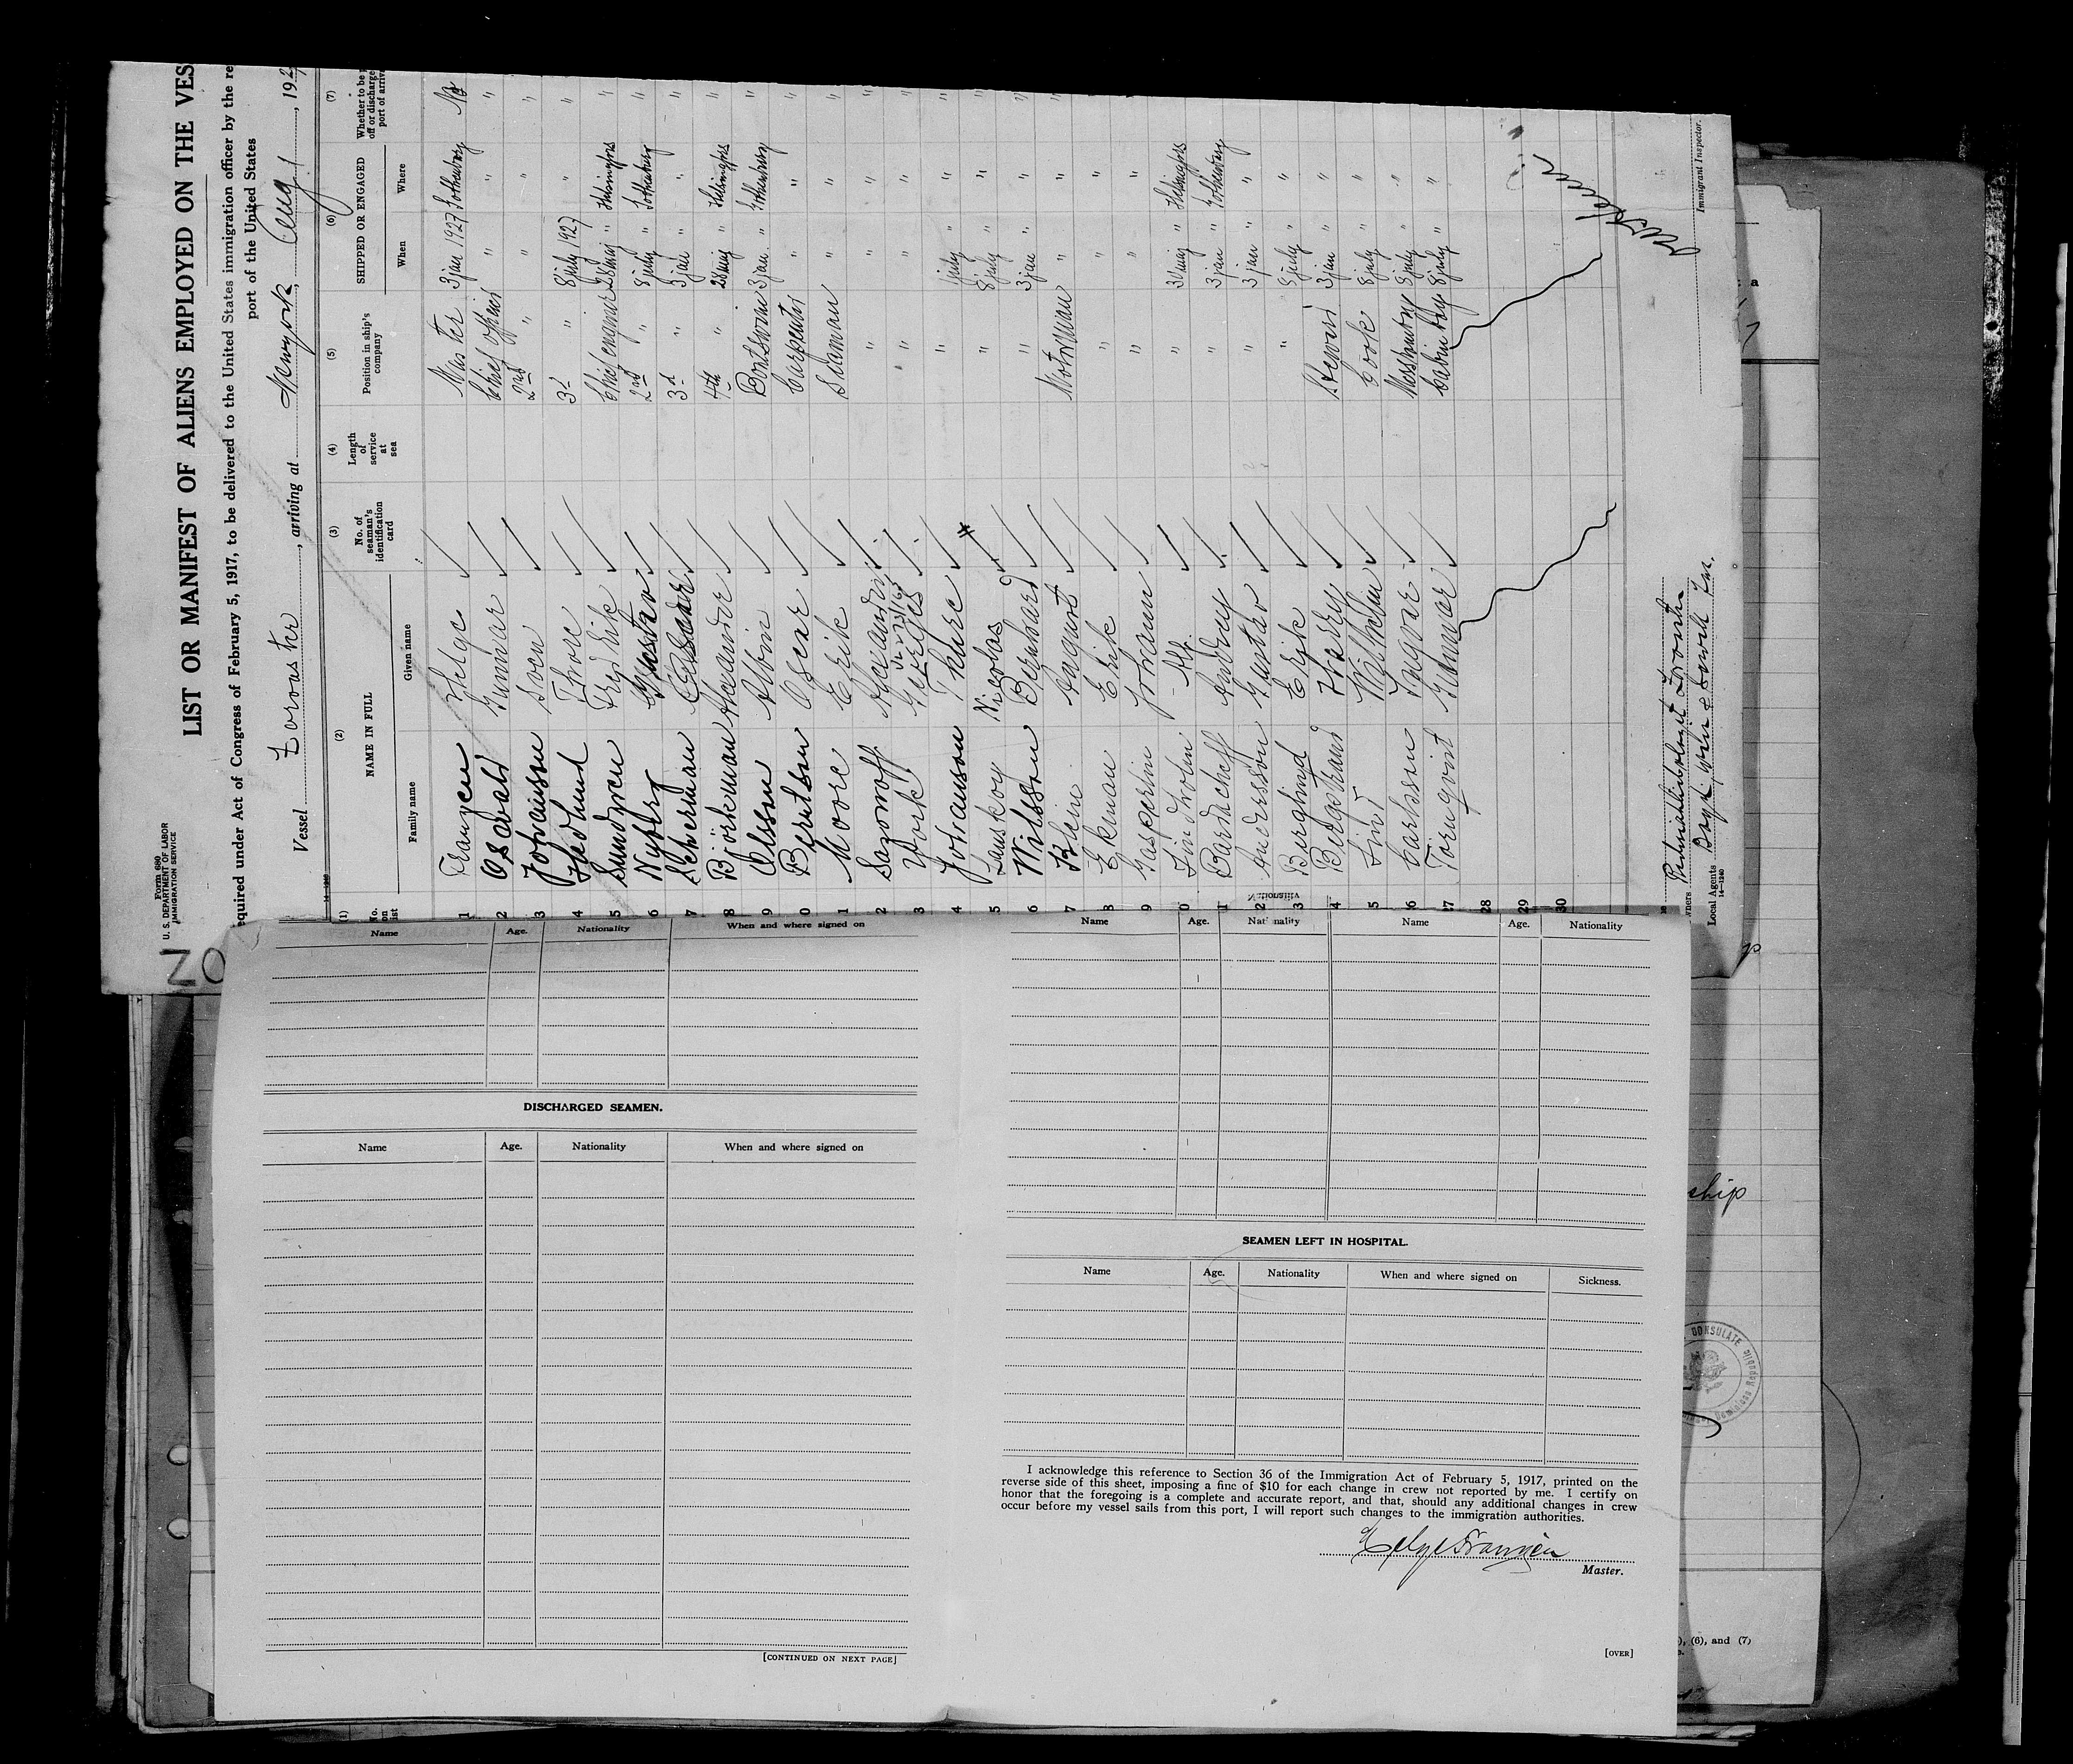 Form 680
U. S. DEPARTMENT OF LABOR
IMMIGRATION SERVICE
ZO
LIST OR MANIFEST OF ALIENS EMPLOYED ON THE VES
equired under Act of Congress of February 5, 1917, to be delivered to the United States immigration officer by the re
port of the United States
Vessel Zoroaster, arriving at Newyork Aug 1, 192
(1) (2) (3) (4) (5) (6) (7)
No. on list NAME IN FULL No. of seaman's identification card Length of service at sea Position in ship's company SHIPPED OR ENGAGED Whether to be off or discharge port of arriva
Family name Given name When Where
1 Franzen Helge Master 3 jan 1927 Gothenburg No
2 Oswald Gunnar Chief officer " " "
3 Johansson Sven 2nd " " " "
4 Hedlund Thore 3d " 8 july 1927 " "
5 Sundgren Fredrik Chief engineer 28 maj " Helsingfors "
6 Nyberg Gustav 2nd " 8 july " Gothenburg "
7 Scherman 3d " 3 jan " " "
8 Björkman Alexander 4th " 28 maj " Helsingfors "
9 Olsson Albin Boatswain 3 jan. " Gothenburg "
0 Berntson Oscar Carpenter " " "
1 Moore Erik Seaman " " "
2 Sazonoff Alexander " " " "
3 York Georges " " " "
4 Johansson Thure " 1 july " " "
5 Lanskoy Nicolas " 8 july " " "
6 Nilsson Bernhard " 3 jan " " "
7 Klein August Motorman " " "
8 Ekman Erik " " "
9 Gasperini Johann " " "
0 Lindholm Alf " 30 maj " Helsingfors
1 Bardacheff Andrey " 3 jan " Gothenburg
2 Andersson Gustav " 3 jan " "
3 Berglund Erik " 8 july " "
4 Bergstrand Harry Steward 3 jan " "
5 Lind Wilhelm Cook 8 july " "
6 Carlsson Ingvar Messman boy 8 july " "
27 Tornqvist Gunnar Cabin boy 8 july " "
28
29
30
Immigrant Inspector.
wners
Local Agents
14—1240
Name Age. Nationality When and where signed on
DISCHARGED SEAMEN.
Name Age. Nationality When and where signed on
[CONTINUED ON NEXT PAGE]
Name Age. Nationality Name Age. Nationality
SEAMEN LEFT IN HOSPITAL.
Name Age. Nationality When and where signed on Sickness.
I acknowledge this reference to Section 36 of the Immigration Act of February 5, 1917, printed on the
reverse side of this sheet, imposing a fine of $10 for each change in crew not reported by me. I certify on
honor that the foregoing is a complete and accurate report, and that, should any additional changes in crew
occur before my vessel sails from this port, I will report such changes to the immigration authorities.
Helge Franzén
Master.
[OVER]
ship
CONSULATE
Dominican Republic
), (6), and (7)